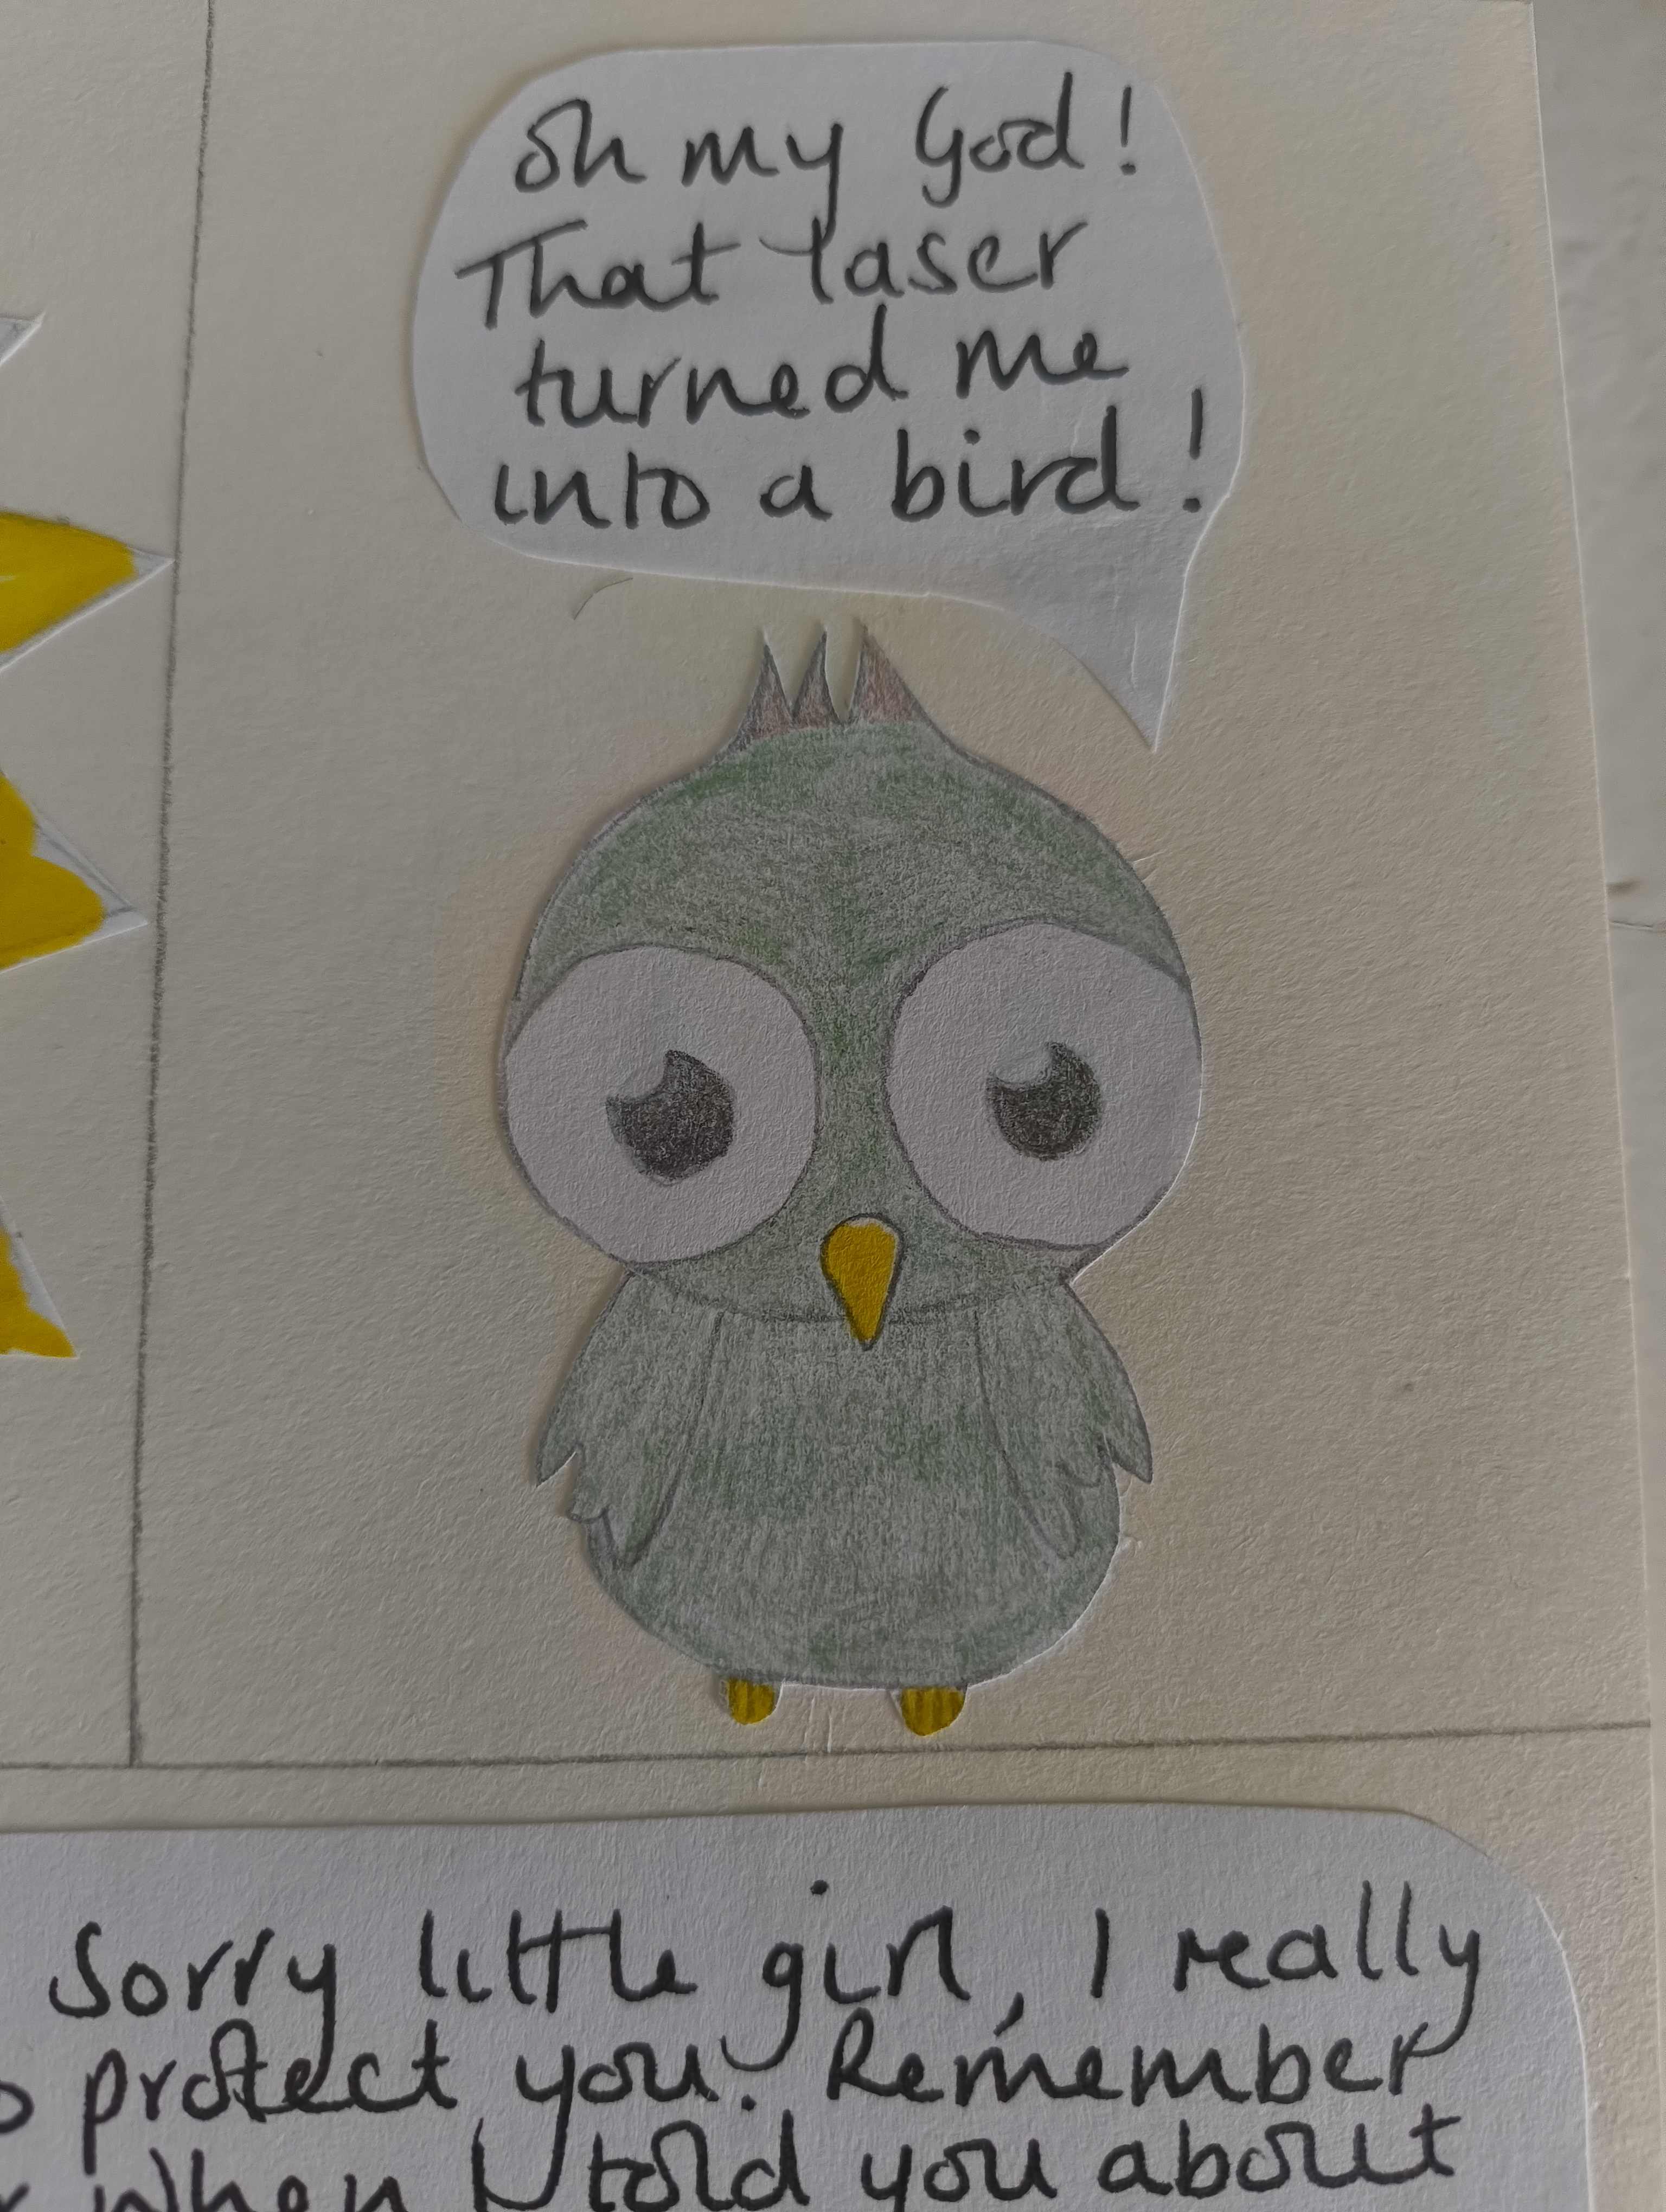 Oh my God!
That laser
turned me
into a bird!
Sorry little girl, I really
protect you. Remember
when I told you about